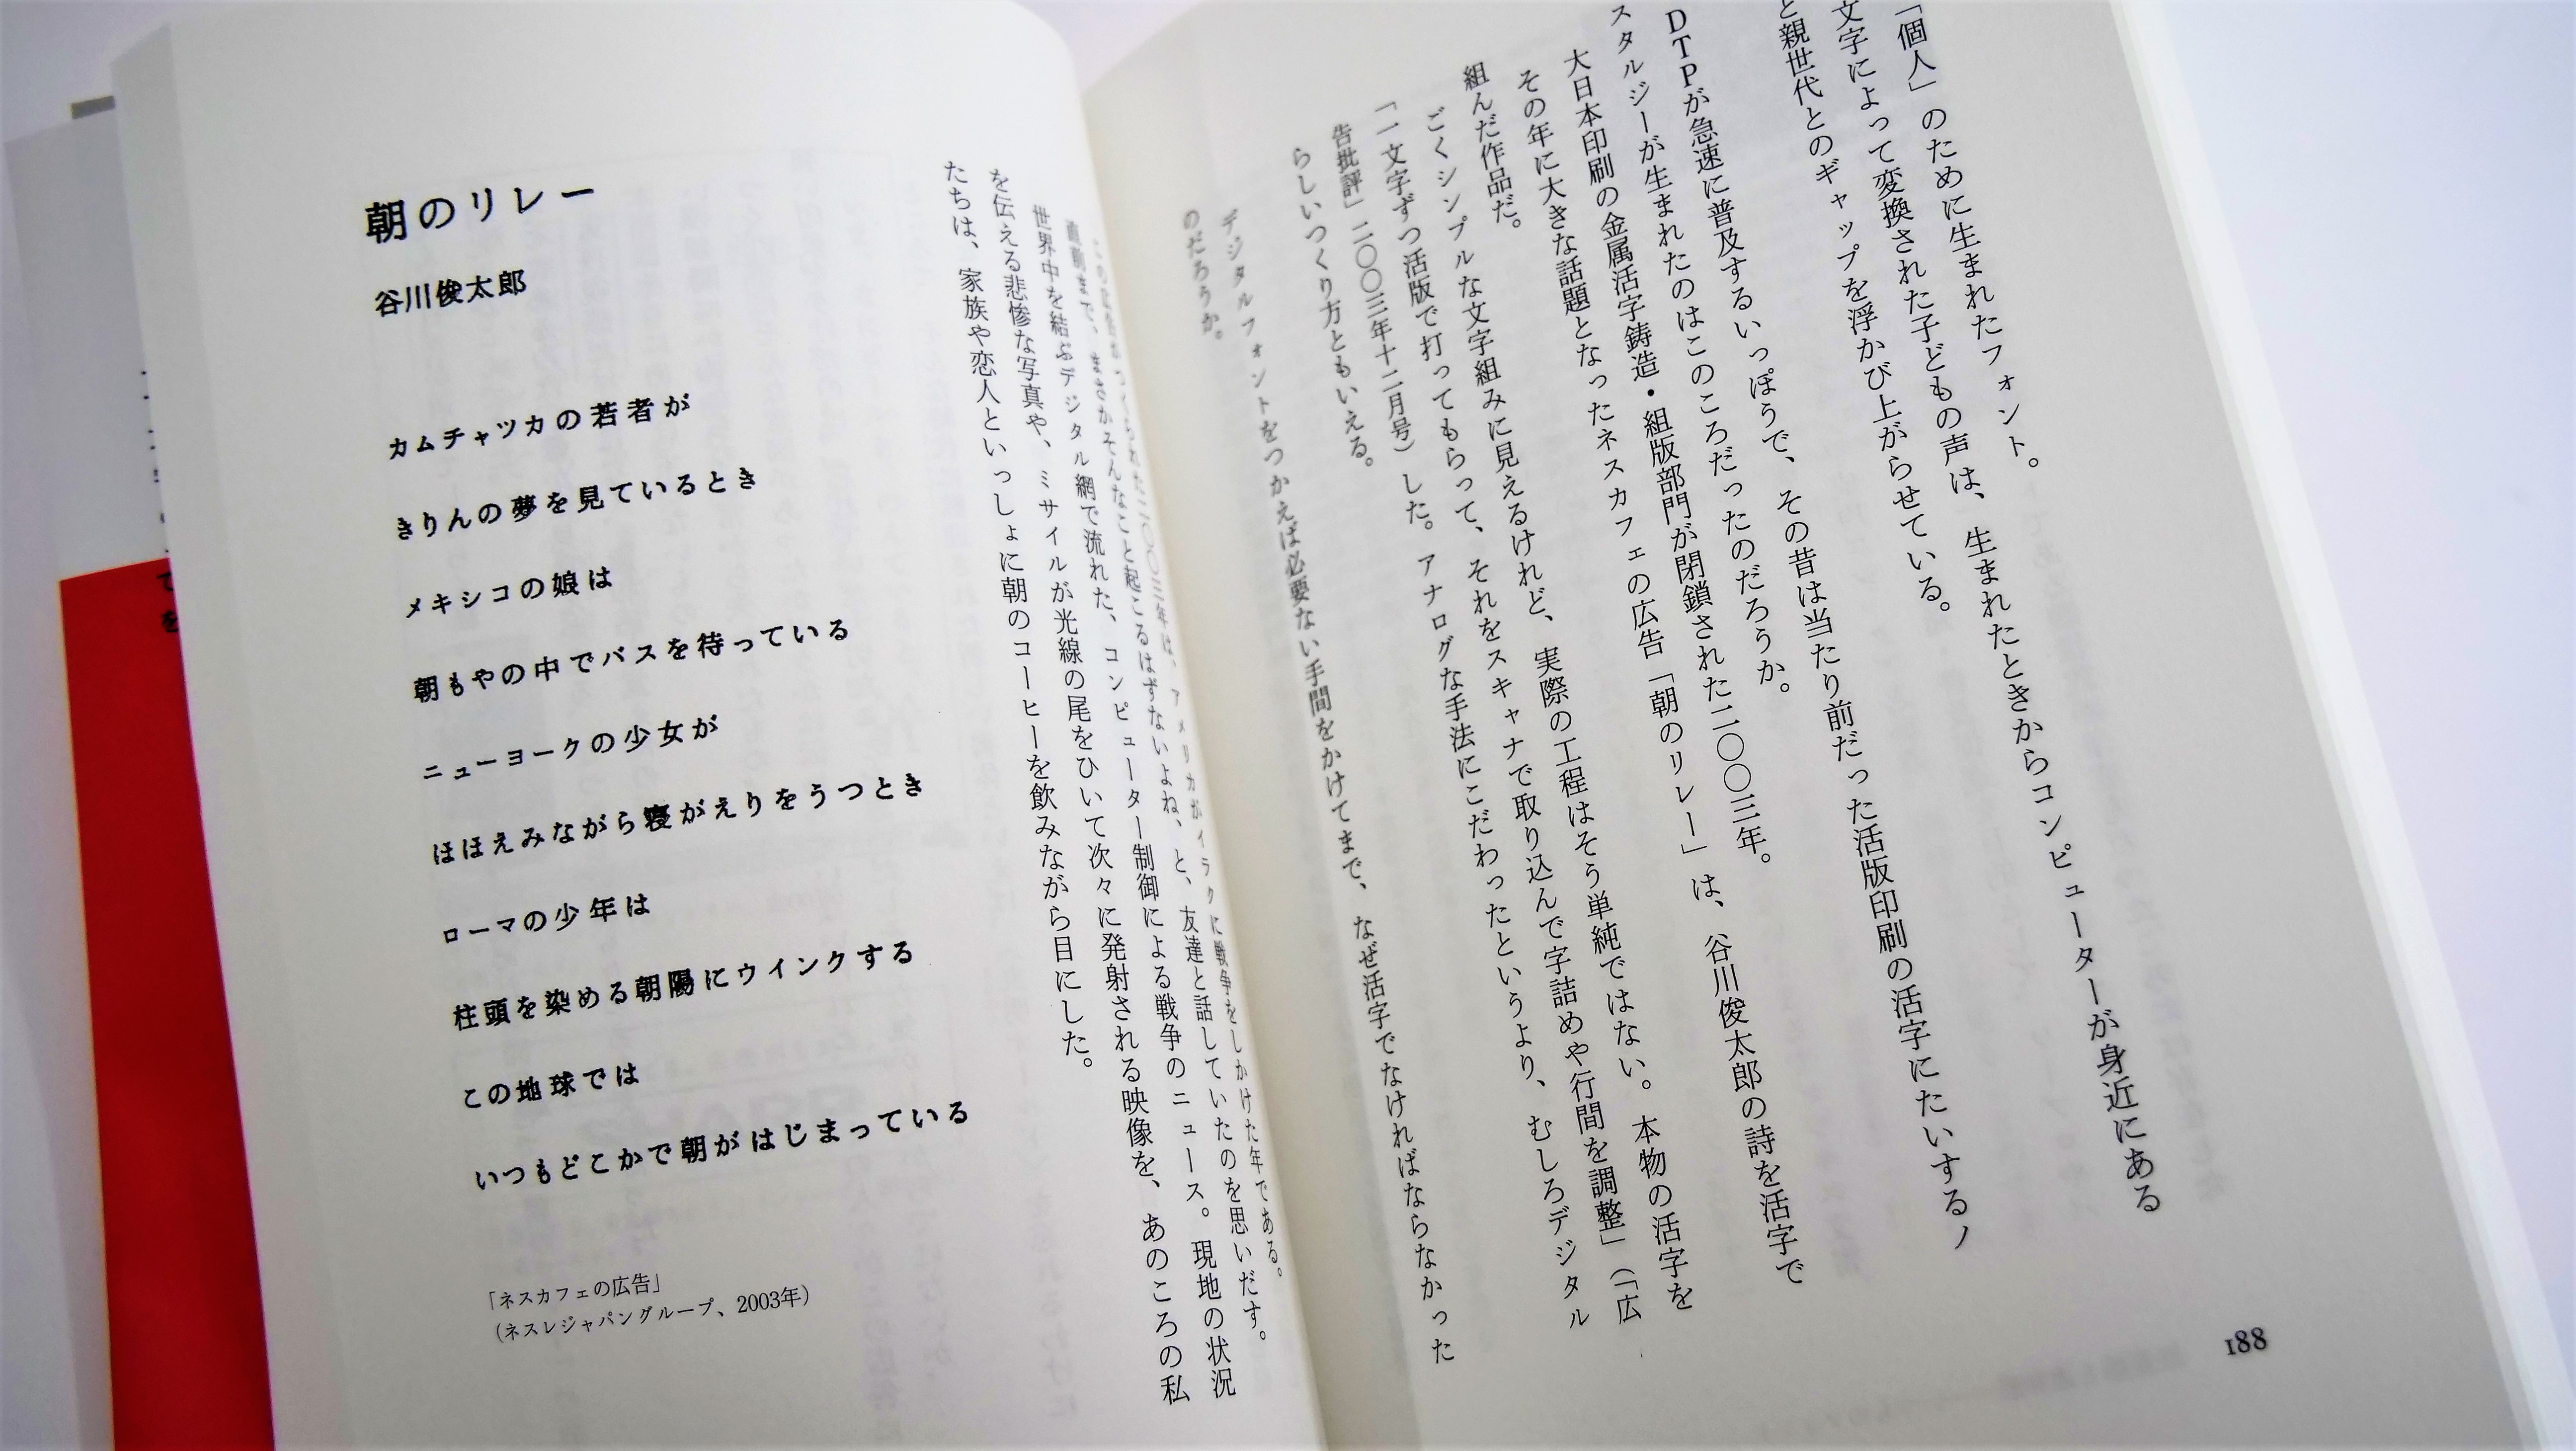 「個人」のために生まれたフォント。
文字によって変換された子どもの声は、生まれたときからコンピューターが身近にある
と親世代とのギャップを浮かび上がらせている。
DTPが急速に普及するいっぽうで、その昔は当たり前だった活版印刷の活字にたいするノ
スタルジーが生まれたのはこのころだったのだろうか。
大日本印刷の金属活字鋳造・組版部門が閉鎖された二〇〇三年。
その年に大きな話題となったネスカフェの広告「朝のリレー」は、谷川俊太郎の詩を活字で
組んだ作品だ。
ごくシンプルな文字組みに見えるけれど、実際の工程はそう単純ではない。本物の活字を
「一文字ずつ活版で打ってもらって、それをスキャナで取り込んで字詰めや行間を調整」(「広
告批評」二〇〇三年十二月号)した。アナログな手法にこだわったというより、むしろデジタル
らしいつくり方ともいえる。
デジタルフォントをつかえば必要ない手間をかけてまで、なぜ活字でなければならなかった
のだろうか。
188
二〇〇三年は、アメリカがイラクに戦争をしかけた年である。
直前まで、まさかそんなこと起こるはずないよね、と、友達と話していたのを思いだす。
世界中を結ぶデジタル網で流れた、コンピューター制御による戦争のニュース。現地の状況
を伝える悲惨な写真や、ミサイルが光線の尾をひいて次々に発射される映像を、あのころの私
たちは、家族や恋人といっしょに朝のコーヒーを飲みながら目にした。
朝のリレー
谷川俊太郎
カムチャツカの若者が
きりんの夢を見ているとき
メキシコの娘は
朝もやの中でバスを待っている
ニューヨークの少女が
ほほえみながら寝がえりをうつとき
ローマの少年は
柱頭を染める朝陽にウインクする
この地球では
いつもどこかで朝がはじまっている
「ネスカフェの広告」
(ネスレジャパングループ、2003年)